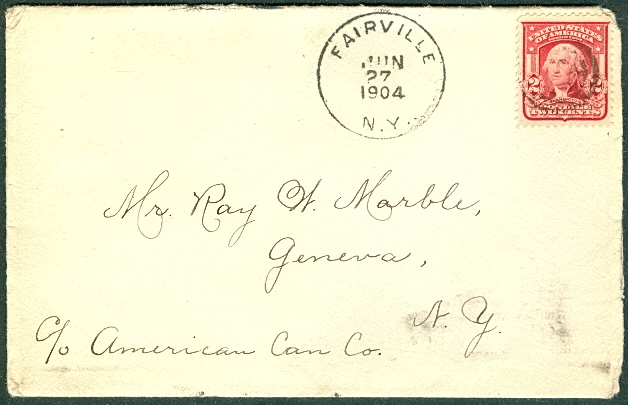 FAIRVILLE
JUN
27
1904
N.Y.
UNITED STATES
OF AMERICA
2 2
POSTAGE
TWO CENTS
Mr. Ray W. Marble,
Geneva,
N.Y.
c/o American Can Co.